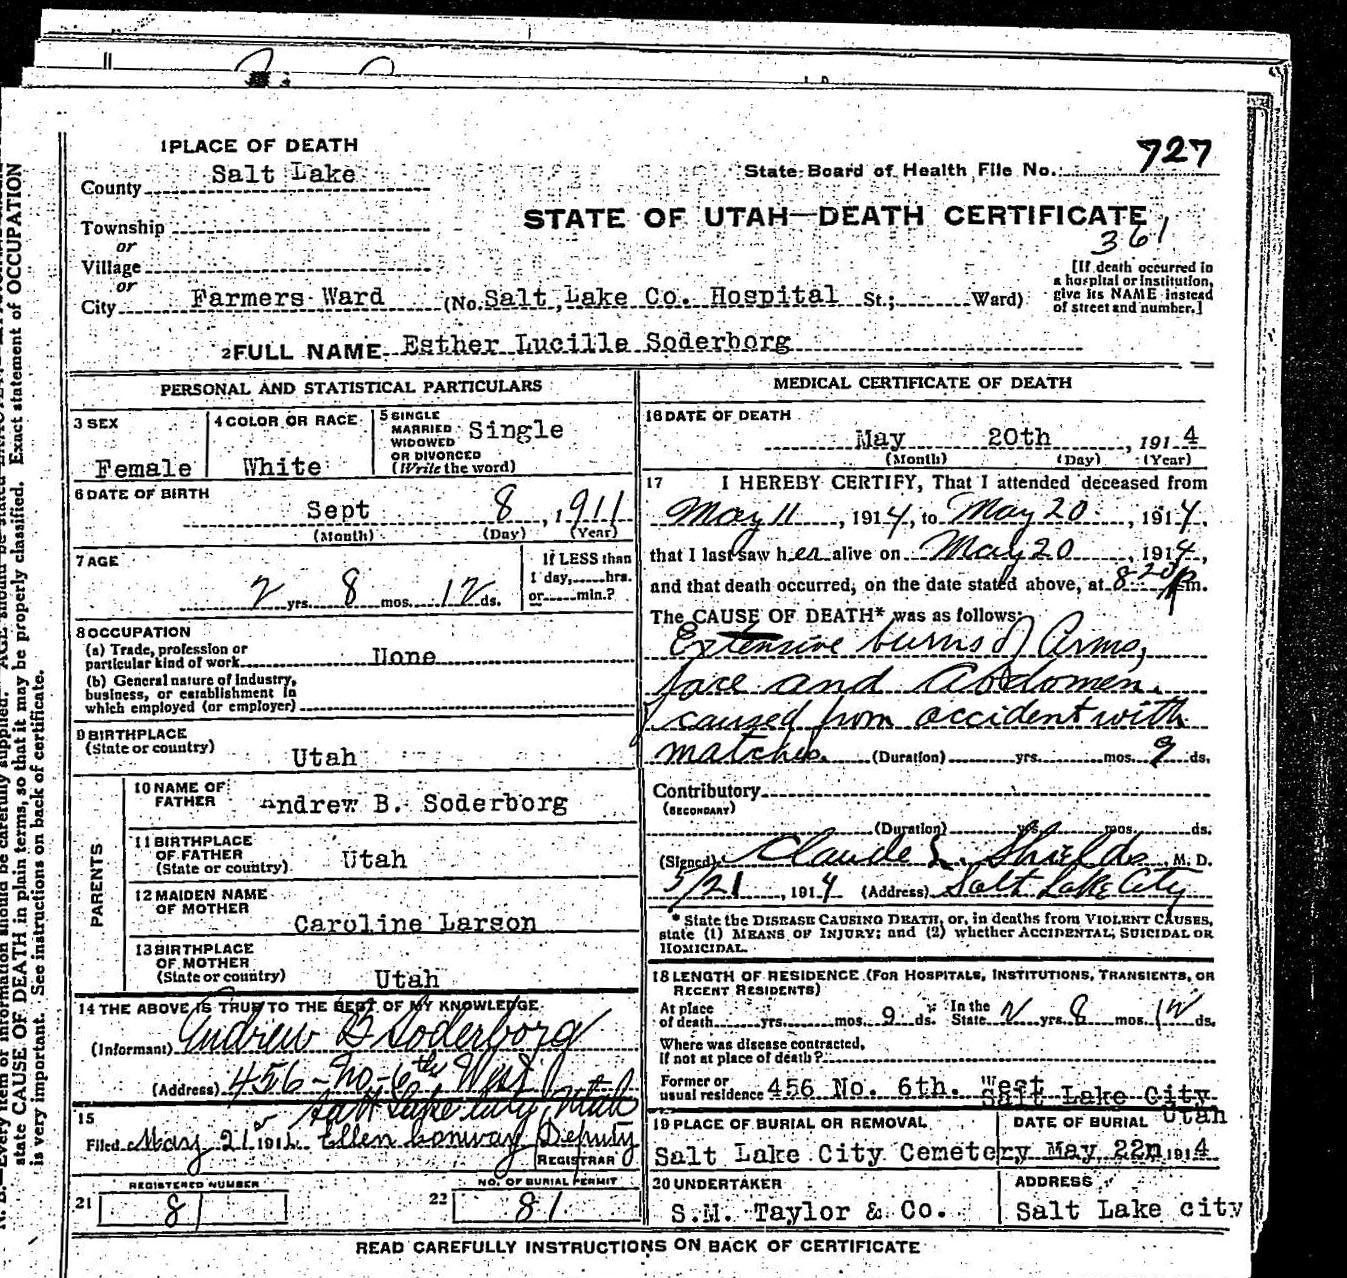 1 PLACE OF DEATH
County Salt Lake
State Board of Health File No. 727
Township
or
Village
or
City Farmers Ward (No. Salt Lake Co. Hospital St.; Ward)
STATE OF UTAH—DEATH CERTIFICATE
361
[If death occurred in
a hospital or institution,
give its NAME instead
of street and number.]
2 FULL NAME Esther Lucille Soderborg
PERSONAL AND STATISTICAL PARTICULARS
3 SEX
Female
4 COLOR OR RACE
White
5 SINGLE
MARRIED
WIDOWED
OR DIVORCED
(Write the word)
Single
6 DATE OF BIRTH
Sept 8, 1911
(Month) (Day) (Year)
7 AGE
2 yrs. 8 mos. 12 ds.
If LESS than
1 day, hrs.
or min.?
8 OCCUPATION
(a) Trade, profession or
particular kind of work None
(b) General nature of Industry,
business, or establishment in
which employed (or employer)
9 BIRTHPLACE
(State or country)
Utah
PARENTS
10 NAME OF
FATHER Andrew B. Soderborg
11 BIRTHPLACE
OF FATHER
(State or country) Utah
12 MAIDEN NAME
OF MOTHER
Caroline Larson
13 BIRTHPLACE
OF MOTHER
(State or country) Utah
14 THE ABOVE IS TRUE TO THE BEST OF MY KNOWLEDGE
(Informant) Andrew B Soderborg
(Address) 456 - No - 6th West
Salt Lake City, Utah
15
Filed May 21, 191 Ellen Conway Deputy
REGISTRAR
21 REGISTERED NUMBER
81
22 NO. OF BURIAL PERMIT
81
MEDICAL CERTIFICATE OF DEATH
16 DATE OF DEATH
May 20th, 1914
(Month) (Day) (Year)
17 I HEREBY CERTIFY, That I attended deceased from
May 11, 1914, to May 20, 1914,
that I last saw her alive on May 20, 1914,
and that death occurred, on the date stated above, at 8 20 P m.
The CAUSE OF DEATH* was as follows:
Extensive burns of Arms,
face and Abdomen.
caused from accident with
matches. (Duration) yrs. mos. 9 ds.
Contributory
(SECONDARY)
(Duration) yrs. mos. ds.
(Signed) Claude L. Shields, M. D.
5/21, 1914 (Address) Salt Lake City
* State the DISEASE CAUSING DEATH, or, in deaths from VIOLENT CAUSES,
state (1) MEANS OF INJURY; and (2) whether ACCIDENTAL, SUICIDAL OR
HOMICIDAL.
18 LENGTH OF RESIDENCE (FOR HOSPITALS, INSTITUTIONS, TRANSIENTS, OR
RECENT RESIDENTS)
At place
of death yrs. mos. 9 ds. In the
State 2 yrs. 8 mos. 12 ds.
Where was disease contracted,
if not at place of death?
Former or
usual residence 456 No. 6th. West
Salt Lake City
Utah
19 PLACE OF BURIAL OR REMOVAL
Salt Lake City Cemetery
DATE OF BURIAL
May 22n 1914
20 UNDERTAKER
S.M. Taylor & Co.
ADDRESS
Salt Lake city
READ CAREFULLY INSTRUCTIONS ON BACK OF CERTIFICATE
N. B.—Every item of information should be carefully supplied. AGE should be stated
state CAUSE OF DEATH in plain terms, so that it may be properly classified. Exact statement of OCCUPATION
is very important. See instructions on back of certificate.